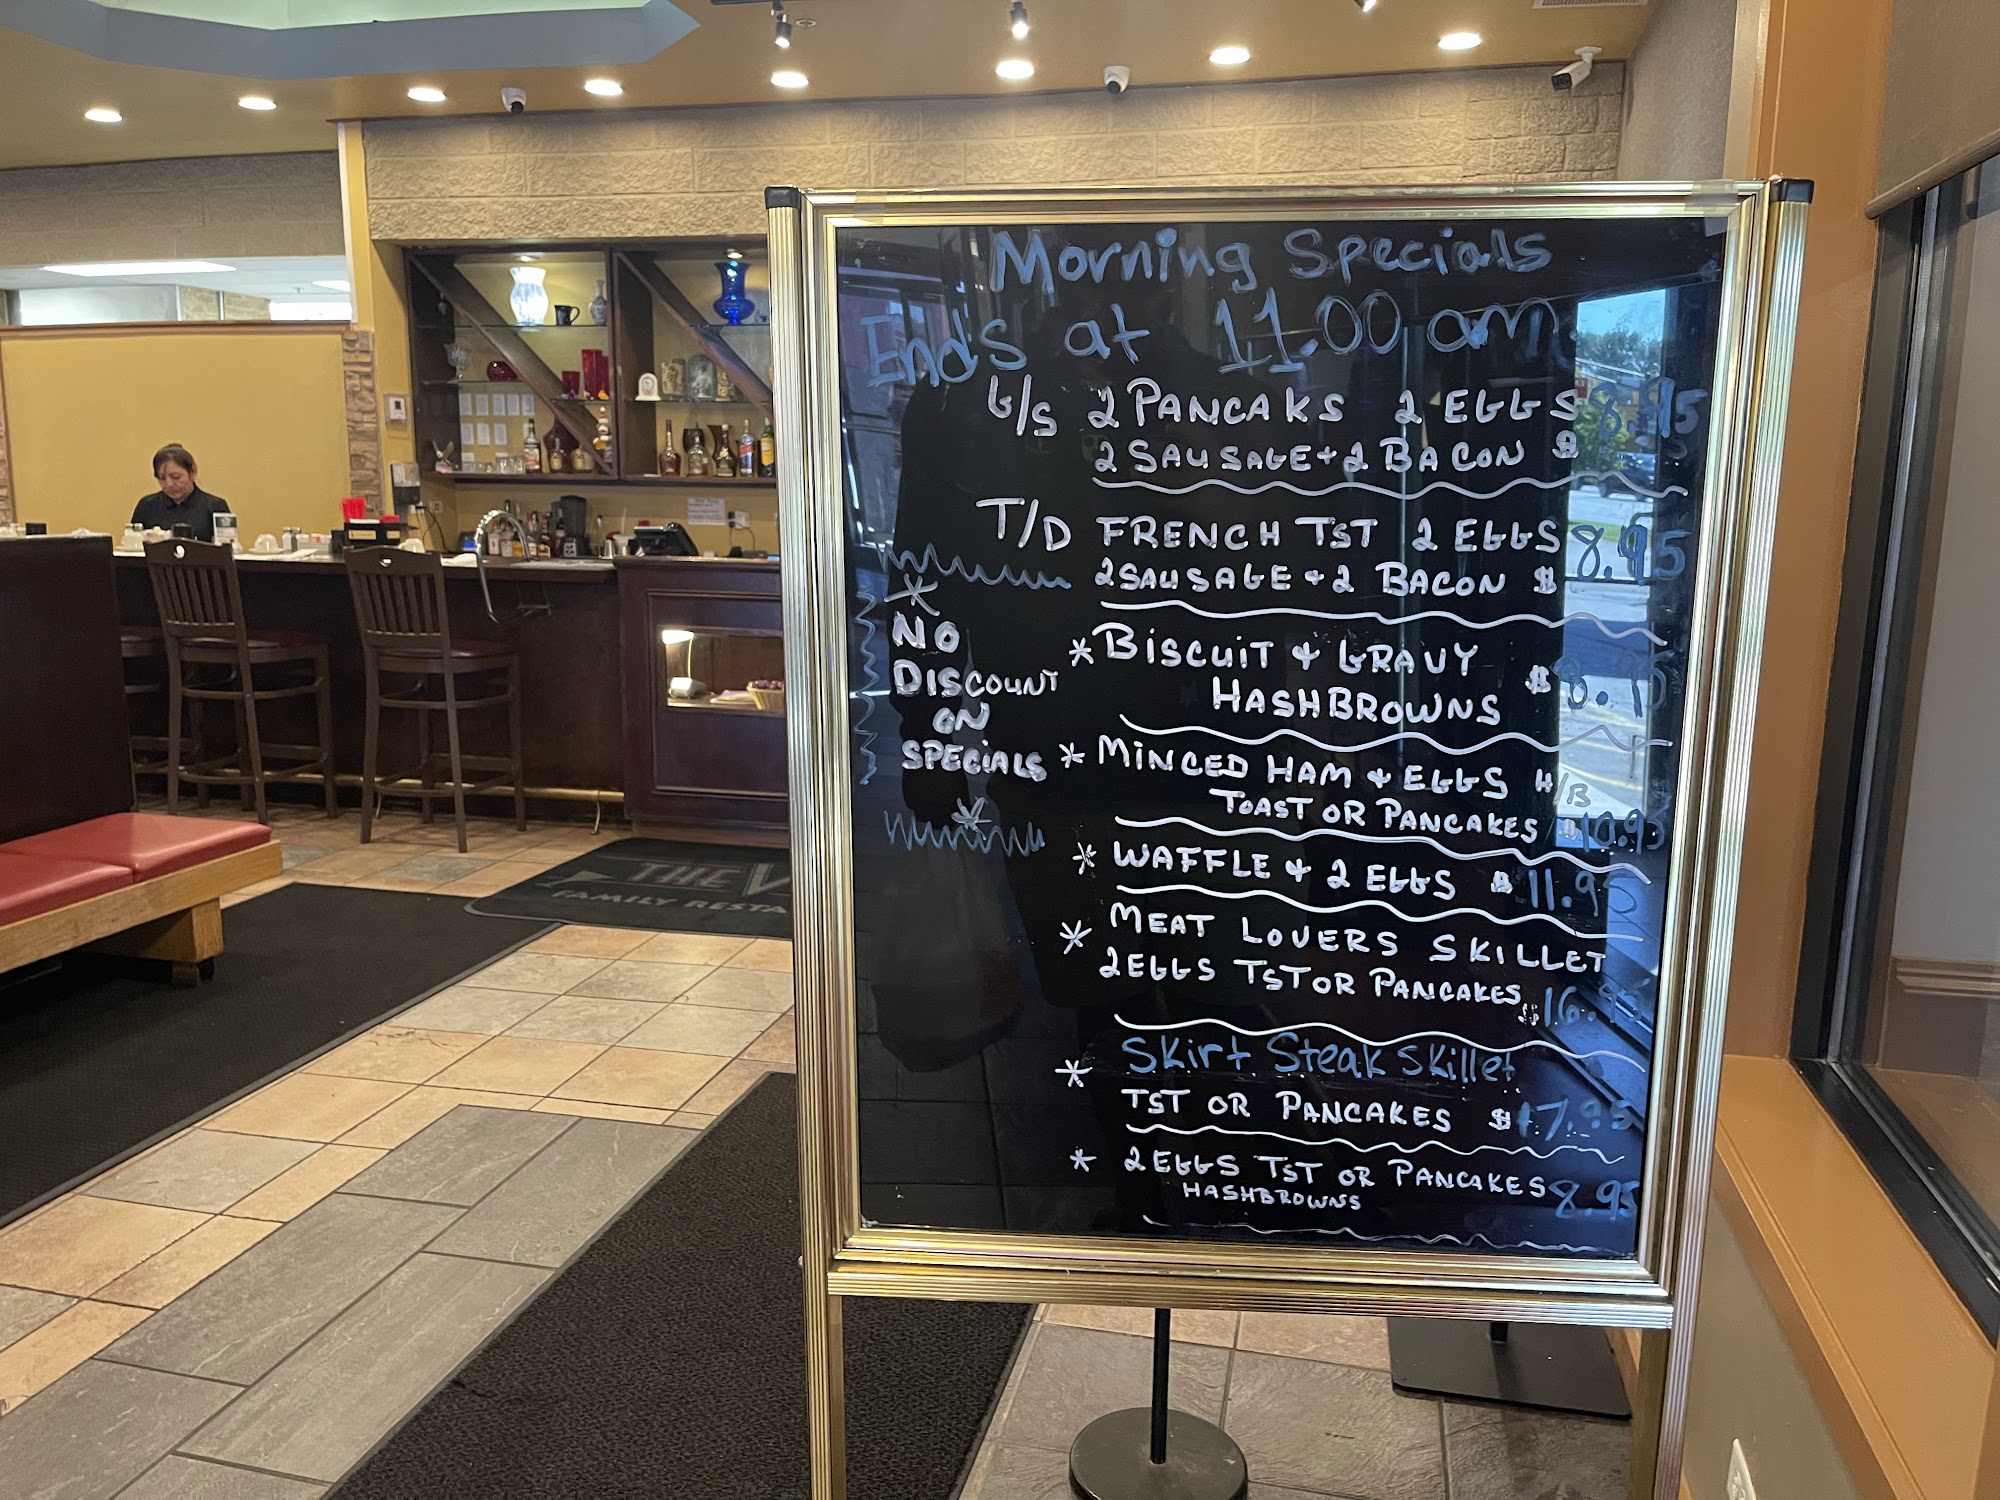 Morning Specials
End's at 11.00 am
G/S 2 PANCAKS 2 EGGS 8.95
2 SAUSAGE + 2 BACON $
T/D FRENCH TST 2 EGGS 8.95
2 SAUSAGE + 2 BACON $
* NO
DISCOUNT
ON
SPECIALS
*
* BISCUIT + GRAVY
HASHBROWNS $ 8.95
* MINCED HAM + EGGS H/B
TOAST OR PANCAKES $ 10.95
* WAFFLE + 2 EGGS $ 11.95
* MEAT LOVERS SKILLET
2 EGGS TST OR PANCAKES $16.95
* Skirt Steak Skillet
TST OR PANCAKES $17.95
* 2 EGGS TST OR PANCAKES 8.95
HASHBROWNS
THE V
FAMILY RESTA